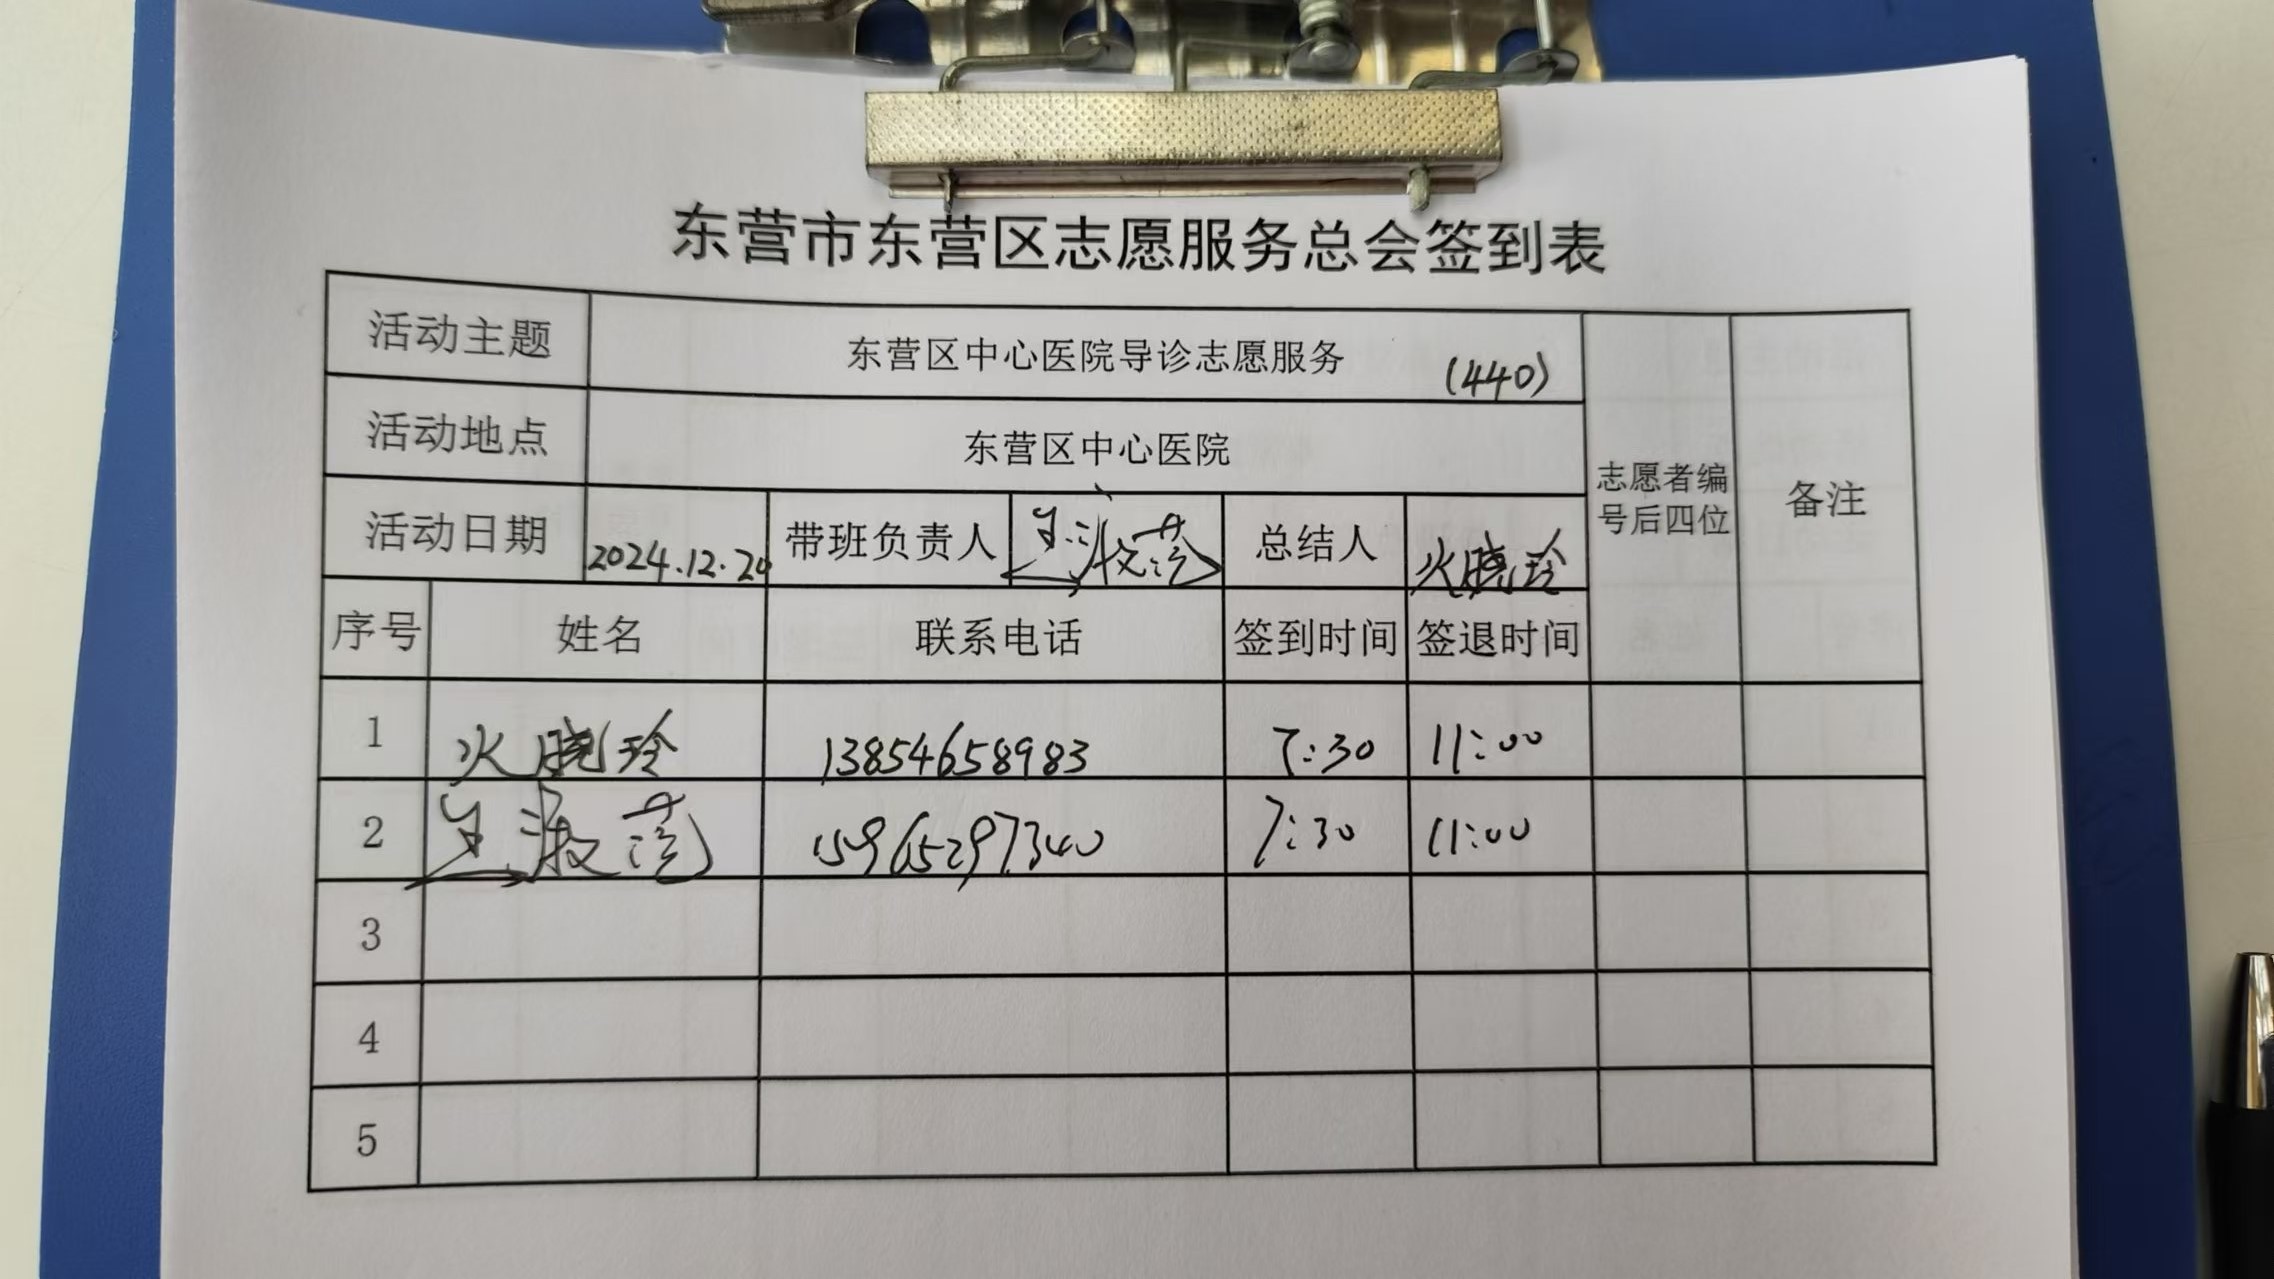 东营市东营区志愿服务总会签到表
活动主题 东营区中心医院导诊志愿服务 (440) 志愿者编号后四位 备注
活动地点 东营区中心医院
活动日期 2024.12.20 带班负责人 总结人 火晓玲
序号 姓名 联系电话 签到时间 签退时间
1 火晓玲 13854658983 7:30 11:00
2 15965297340 7:30 11:00
3
4
5